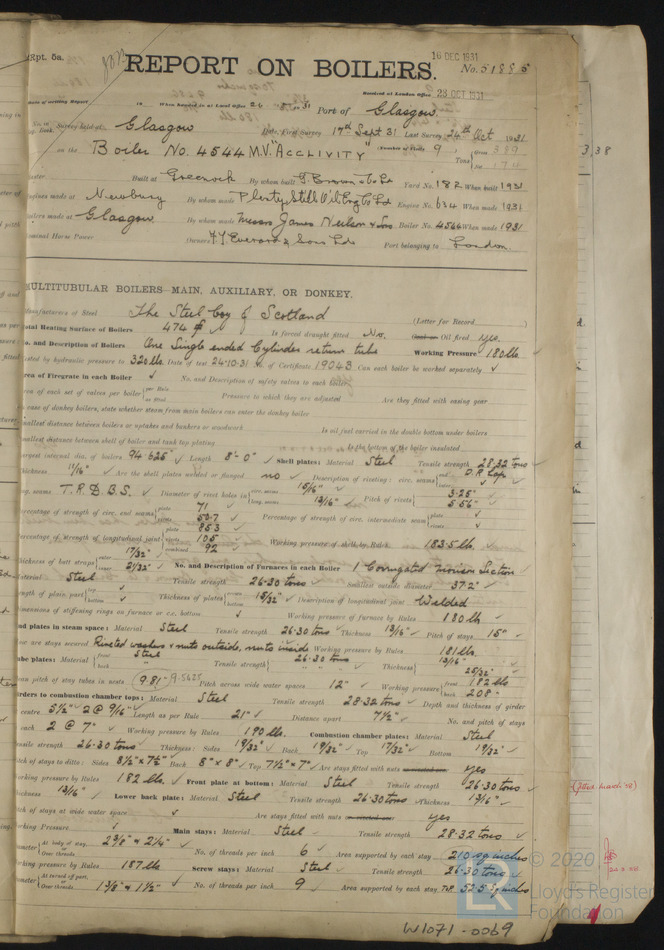 Rpt. 5a.
16 DEC 1931
REPORT ON BOILERS.
No. 51885
Received at London Office 28 OCT 1931
Date of writing Report 19 When handed in at Local Office 19 31 Port of Glasgow.
No. in Reg. Book. Survey held at Glasgow Date, First Survey 17th Sept 31 Last Survey 24th Oct 1931
on the Boiler No. 4544 M.V. "ACCLIVITY" (Number of Visits 9 Gross 389 Tons
Built at Greenock By whom built G. Brown & Co Ld Yard No. 182 When built 1931
Engines made at Newbury By whom made Plenty, Still Oil Eng Co Ld Engine No. 634 When made 1931
Boilers made at Glasgow By whom made Messrs James Neilson & Son Boiler No. 4544 When made 1931
Nominal Horse Power Owners F. T. Everard & Sons Ltd Port belonging to London.
MULTITUBULAR BOILERS—MAIN, AUXILIARY, OR DONKEY.
Manufacturers of Steel The Steel Coy of Scotland (Letter for Record )
Total Heating Surface of Boilers 474 Is forced draught fitted No. Oil fired yes.
No. and Description of Boilers One Single ended Cylindr return tube Working Pressure 180 lb
Tested by hydraulic pressure to 320 lb Date of test 24-10-31 No. of Certificate 19043 Can each boiler be worked separately ✓
Area of Firegrate in each Boiler ✓ No. and Description of safety valves to each boiler
Area of each set of valves per boiler {per Rule as fitted Pressure to which they are adjusted Are they fitted with easing gear
In case of donkey boilers, state whether steam from main boilers can enter the donkey boiler
Smallest distance between boilers or uptakes and bunkers or woodwork Is oil fuel carried in the double bottom under boilers
Smallest distance between shell of boiler and tank top plating Is the bottom of the boiler insulated
Largest internal dia. of boilers 94.625" ✓ Length 8'-0" ✓ Shell plates: Material Steel Tensile strength 28-32 tons
Thickness 11/16" ✓ Are the shell plates welded or flanged no ✓ Description of riveting: circ. seams {end D.R. Lap
long. seams T.R.D.B.S. ✓ Diameter of rivet holes in {circ. seams 15/16" long. seams 13/16" ✓ Pitch of rivets {3.25" 5.56"
Percentage of strength of circ. end seams {plate 71 rivets 50.7 Percentage of strength of circ. intermediate seam {plate ✓ rivets ✓
Percentage of strength of longitudinal joint {plate 85.3 rivets 105 combined 92 Working pressure of shell by Rules 183.5 lb
Thickness of butt straps {outer 17/32" inner 21/32" No. and Description of Furnaces in each Boiler 1 Corrugated Morison Section
Material Steel Tensile strength 26-30 tons Smallest outside diameter 37.2"
Length of plain part {top bottom Thickness of plates {crown bottom 15/32" ✓ Description of longitudinal joint Welded
Dimensions of stiffening rings on furnace or c.c. bottom ✓ Working pressure of furnace by Rules 180 lb
End plates in steam space: Material Steel Tensile strength 26-30 tons Thickness 13/16" ✓ Pitch of stays 15"
How are stays secured Riveted washers & nuts outside, nuts inside Working pressure by Rules 181 lb
Tube plates: Material {front Steel back " Tensile strength {26-30 tons Thickness {13/16" 25/32"
Mean pitch of stay tubes in nests (9.81) 9.5625 Pitch across wide water spaces 12" ✓ Working pressure {front 182 lb back 208"
Girders to combustion chamber tops: Material Steel Tensile strength 28-32 tons Depth and thickness of girder
at centre 5 1/2" 2 @ 9/16" ✓ Length as per Rule 21" ✓ Distance apart 7 1/2" ✓ No. and pitch of stays
in each 2 @ 7" ✓ Working pressure by Rules 190 lb. Combustion chamber plates: Material Steel
Tensile strength 26-30 tons ✓ Thickness: Sides 19/32" ✓ Back 19/32" ✓ Top 17/32" Bottom 19/32"
Pitch of stays to ditto: Sides 8 1/2" x 7 1/2" Back 8" x 8" ✓ Top 7 1/2" x 7" ✓ Are stays fitted with nuts yes
Working pressure by Rules 182 lb. Front plate at bottom: Material Steel Tensile strength 26-30 tons
Thickness 13/16" ✓ Lower back plate: Material Steel Tensile strength 26-30 tons Thickness 13/16" ✓
Pitch of stays at wide water space ✓ Are stays fitted with nuts yes
Working Pressure ✓ Main stays: Material Steel Tensile strength 28-32 tons
Diameter {At body of stay, or Over threads 2 3/8" & 2 1/4" ✓ No. of threads per inch 6 ✓ Area supported by each stay 210 sq inches
Working pressure by Rules 187 lb Screw stays: Material Steel Tensile strength 26-30 tons
Diameter {At turned off part, or Over threads 1 3/8" & 1 1/2" ✓ No. of threads per inch 9 ✓ Area supported by each stay Top 52.5 sq inches
W1071-0069
© 2020
Lloyd's Register
Foundation